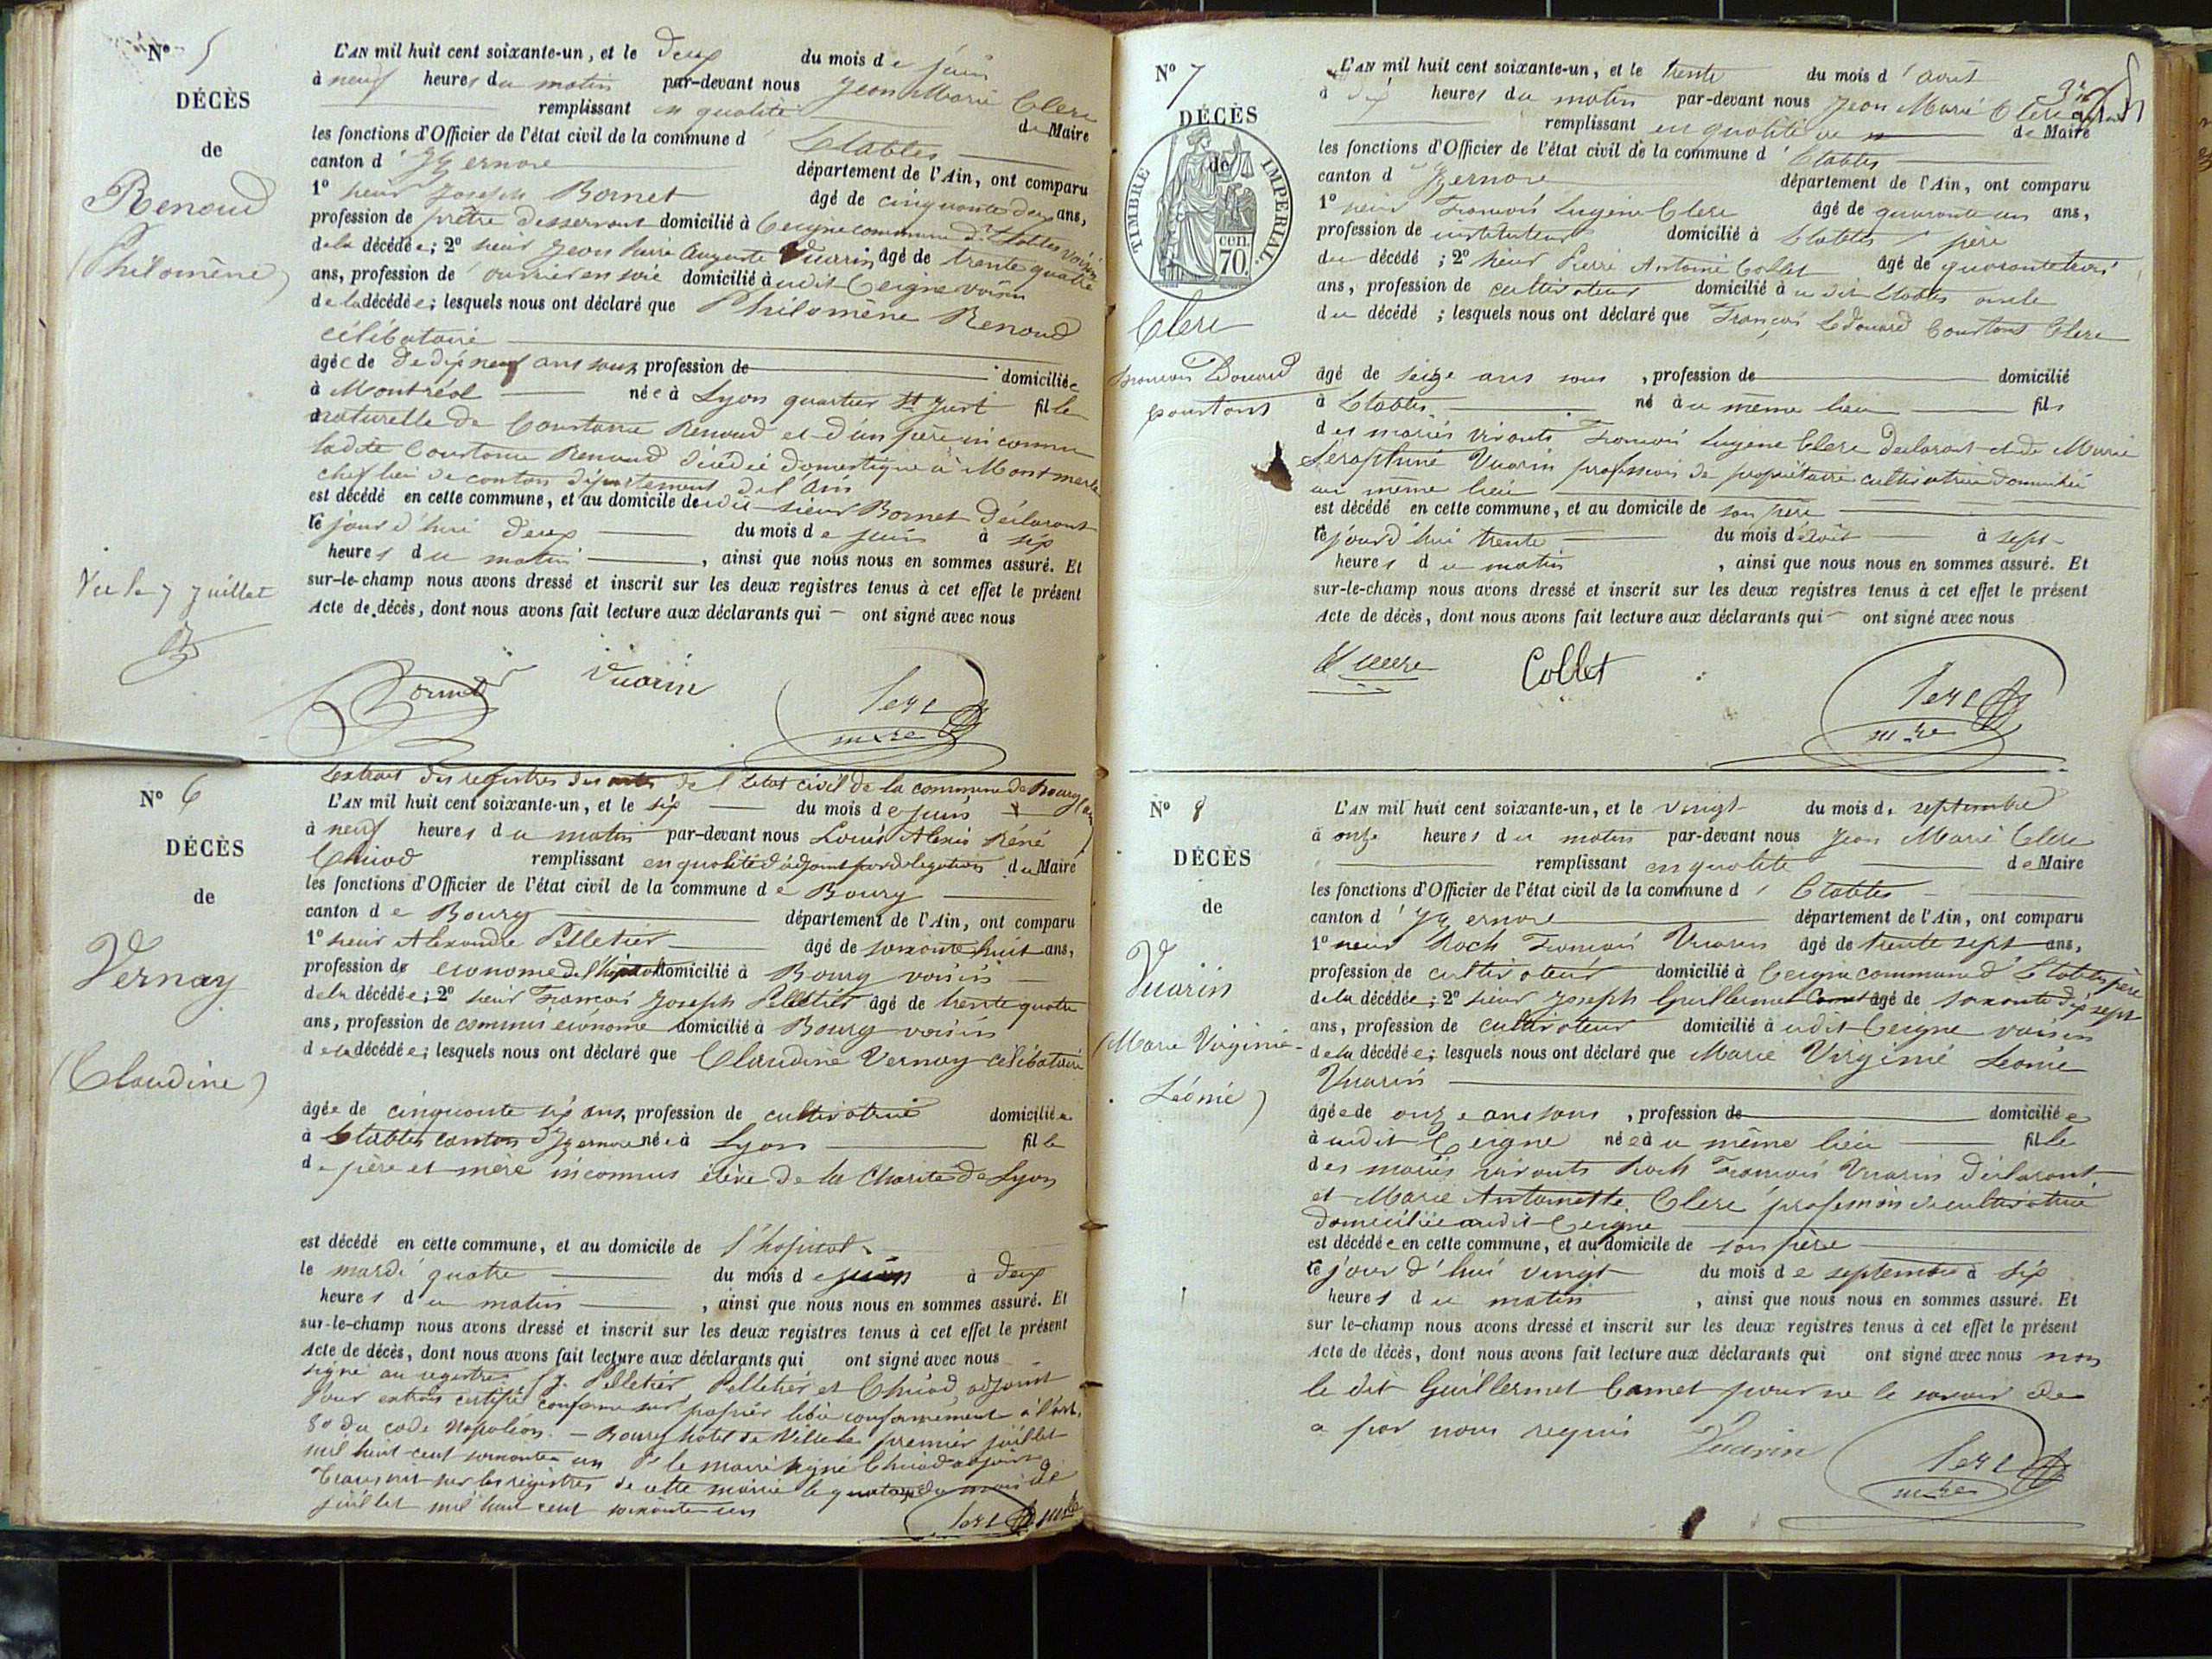 N° 5
DÉCÈS
de
Renoud
(Philomène)
Vu le 7 juillet
L'AN mil huit cent soixante-un, et le deux du mois de juin
à neuf heures du matin par-devant nous Jean Marie Clerc
remplissant en qualité de Maire
les fonctions d'Officier de l'état civil de la commune d' Etables
canton d' Izernore département de l'Ain, ont comparu
1° sieur Joseph Bornet âgé de cinquante deux ans,
profession de prêtre desservant domicilié à Ceigne commune d'Etables voisin
de la décédée; 2° sieur Jean Marie Auguste Vuarin âgé de trente quatre
ans, profession de ouvrier en soie domicilié à udit Ceigne voisin
de la décédée; lesquels nous ont déclaré que Philomène Renoud
célibataire
âgée de dedix neuf ans sans profession de domiciliée
à Montréal née à Lyon quartier St Just fille
naturelle de Constance Renoud et d'un père inconnu
ladite Constance Renoud décédée domestique à Montmerle
chef lieu de canton département de l'Ain
est décédé en cette commune, et au domicile de udit sieur Bornet déclarant
ce jour d'hui deux du mois de juin à six
heures du matin, ainsi que nous nous en sommes assuré. Et
sur-le-champ nous avons dressé et inscrit sur les deux registres tenus à cet effet le présent
Acte de décès, dont nous avons fait lecture aux déclarants qui ont signé avec nous
Bornet Vuarin Clerc
mre
extrait des registres des actes de l'Etat civil de la commune de Bourg (ain)
N° 6
DÉCÈS
de
Vernay
(Claudine)
L'AN mil huit cent soixante-un, et le six du mois de juin
à neuf heures du matin par-devant nous Louis Alexis Réné
Chicod remplissant en qualité d'adjoint par délégation du Maire
les fonctions d'Officier de l'état civil de la commune de Bourg
canton de Bourg département de l'Ain, ont comparu
1° sieur Alexandre Pelletier âgé de soixante huit ans,
profession de econome de l'hôpital domicilié à Bourg voisin
de la décédée; 2° sieur François Joseph Pelletier âgé de trente quatre
ans, profession de commis econome domicilié à Bourg voisin
de la décédée; lesquels nous ont déclaré que Claudine Vernay célibataire
âgée de cinquante six ans, profession de cultivatrice domiciliée
à Etables canton d'Izernore née à Lyon fille
de père et mère inconnus élève de la Charité de Lyon
est décédé en cette commune, et au domicile de l'hopital
le mardi quatre du mois de juin à deux
heures du matin, ainsi que nous nous en sommes assuré. Et
sur-le-champ nous avons dressé et inscrit sur les deux registres tenus à cet effet le présent
Acte de décès, dont nous avons fait lecture aux déclarants qui ont signé avec nous
signé au registres f. J. Pelletier, Pelletier et Chicod, adjoint
Pour extrait certifié conforme sur papier libre conformément à l'art.
80 du code Napoléon. - Bourg hotel de Ville le premier juillet
mil huit cent soixante un Pr le maire signé Chicod adjoint
Transcrit sur les registres de cette mairie le quatorze du mois de
juillet mil huit cent soixante un
Clerc mre
N° 7
DÉCÈS
de
TIMBRE IMPERIAL
70 cen.
Clerc
François Edouard
Constant
L'AN mil huit cent soixante-un, et le trente du mois d'août
à dix heures du matin par-devant nous Jean Marie Clerc
remplissant en qualité de Maire
les fonctions d'Officier de l'état civil de la commune d' Etables
canton d' Izernore département de l'Ain, ont comparu
1° sieur François Eugène Clerc âgé de quarante un ans,
profession de instituteur domicilié à Etables père
du décédé; 2° sieur Pierre Antoine Collet âgé de quarante trois
ans, profession de cultivateur domicilié à udit Etables oncle
du décédé; lesquels nous ont déclaré que François Edouard Constant Clerc
âgé de seize ans sans, profession de domicilié
à Etables né à u même lieu fils
des mariés vivants François Eugène Clerc déclarant et de Marie
Séraphine Vuarin profession de propriétaire cultivatrice domiciliée
au même lieu
est décédé en cette commune, et au domicile de son père
ce jourd'hui trente du mois d'août à sept
heures du matin, ainsi que nous nous en sommes assuré. Et
sur-le-champ nous avons dressé et inscrit sur les deux registres tenus à cet effet le présent
Acte de décès, dont nous avons fait lecture aux déclarants qui ont signé avec nous
Collet Clerc
mre
N° 8
DÉCÈS
de
Vuarin
(Marie Virginie
Léonie)
L'AN mil huit cent soixante-un, et le vingt du mois de septembre
à onze heures du matin par-devant nous Jean Marie Clerc
remplissant en qualité de Maire
les fonctions d'Officier de l'état civil de la commune d' Etables
canton d' Izernore département de l'Ain, ont comparu
1° sieur Roch François Vuarin âgé de trente sept ans,
profession de cultivateur domicilié à Ceigne commune d'Etables père
de la décédée; 2° sieur Joseph Guillermet Camet âgé de soixante dix sept
ans, profession de cultivateur domicilié à udit Ceigne voisin
de la décédée; lesquels nous ont déclaré que Marie Virginie Léonie
Vuarin
âgée de onze ans sans, profession de domiciliée
à udit Ceigne née à u même lieu fille
des mariés vivants Roch François Vuarin déclarant
et Marie Antoinette Clerc profession de cultivatrice
domiciliée audit Ceigne
est décédée en cette commune, et au domicile de son père
ce jour d'hui vingt du mois de septembre à six
heures du matin, ainsi que nous nous en sommes assuré. Et
sur le-champ nous avons dressé et inscrit sur les deux registres tenus à cet effet le présent
Acte de décès, dont nous avons fait lecture aux déclarants qui ont signé avec nous non
le dit Guillermet Camet pour ne le savoir de
a par nous requis Vuarin Clerc
mre